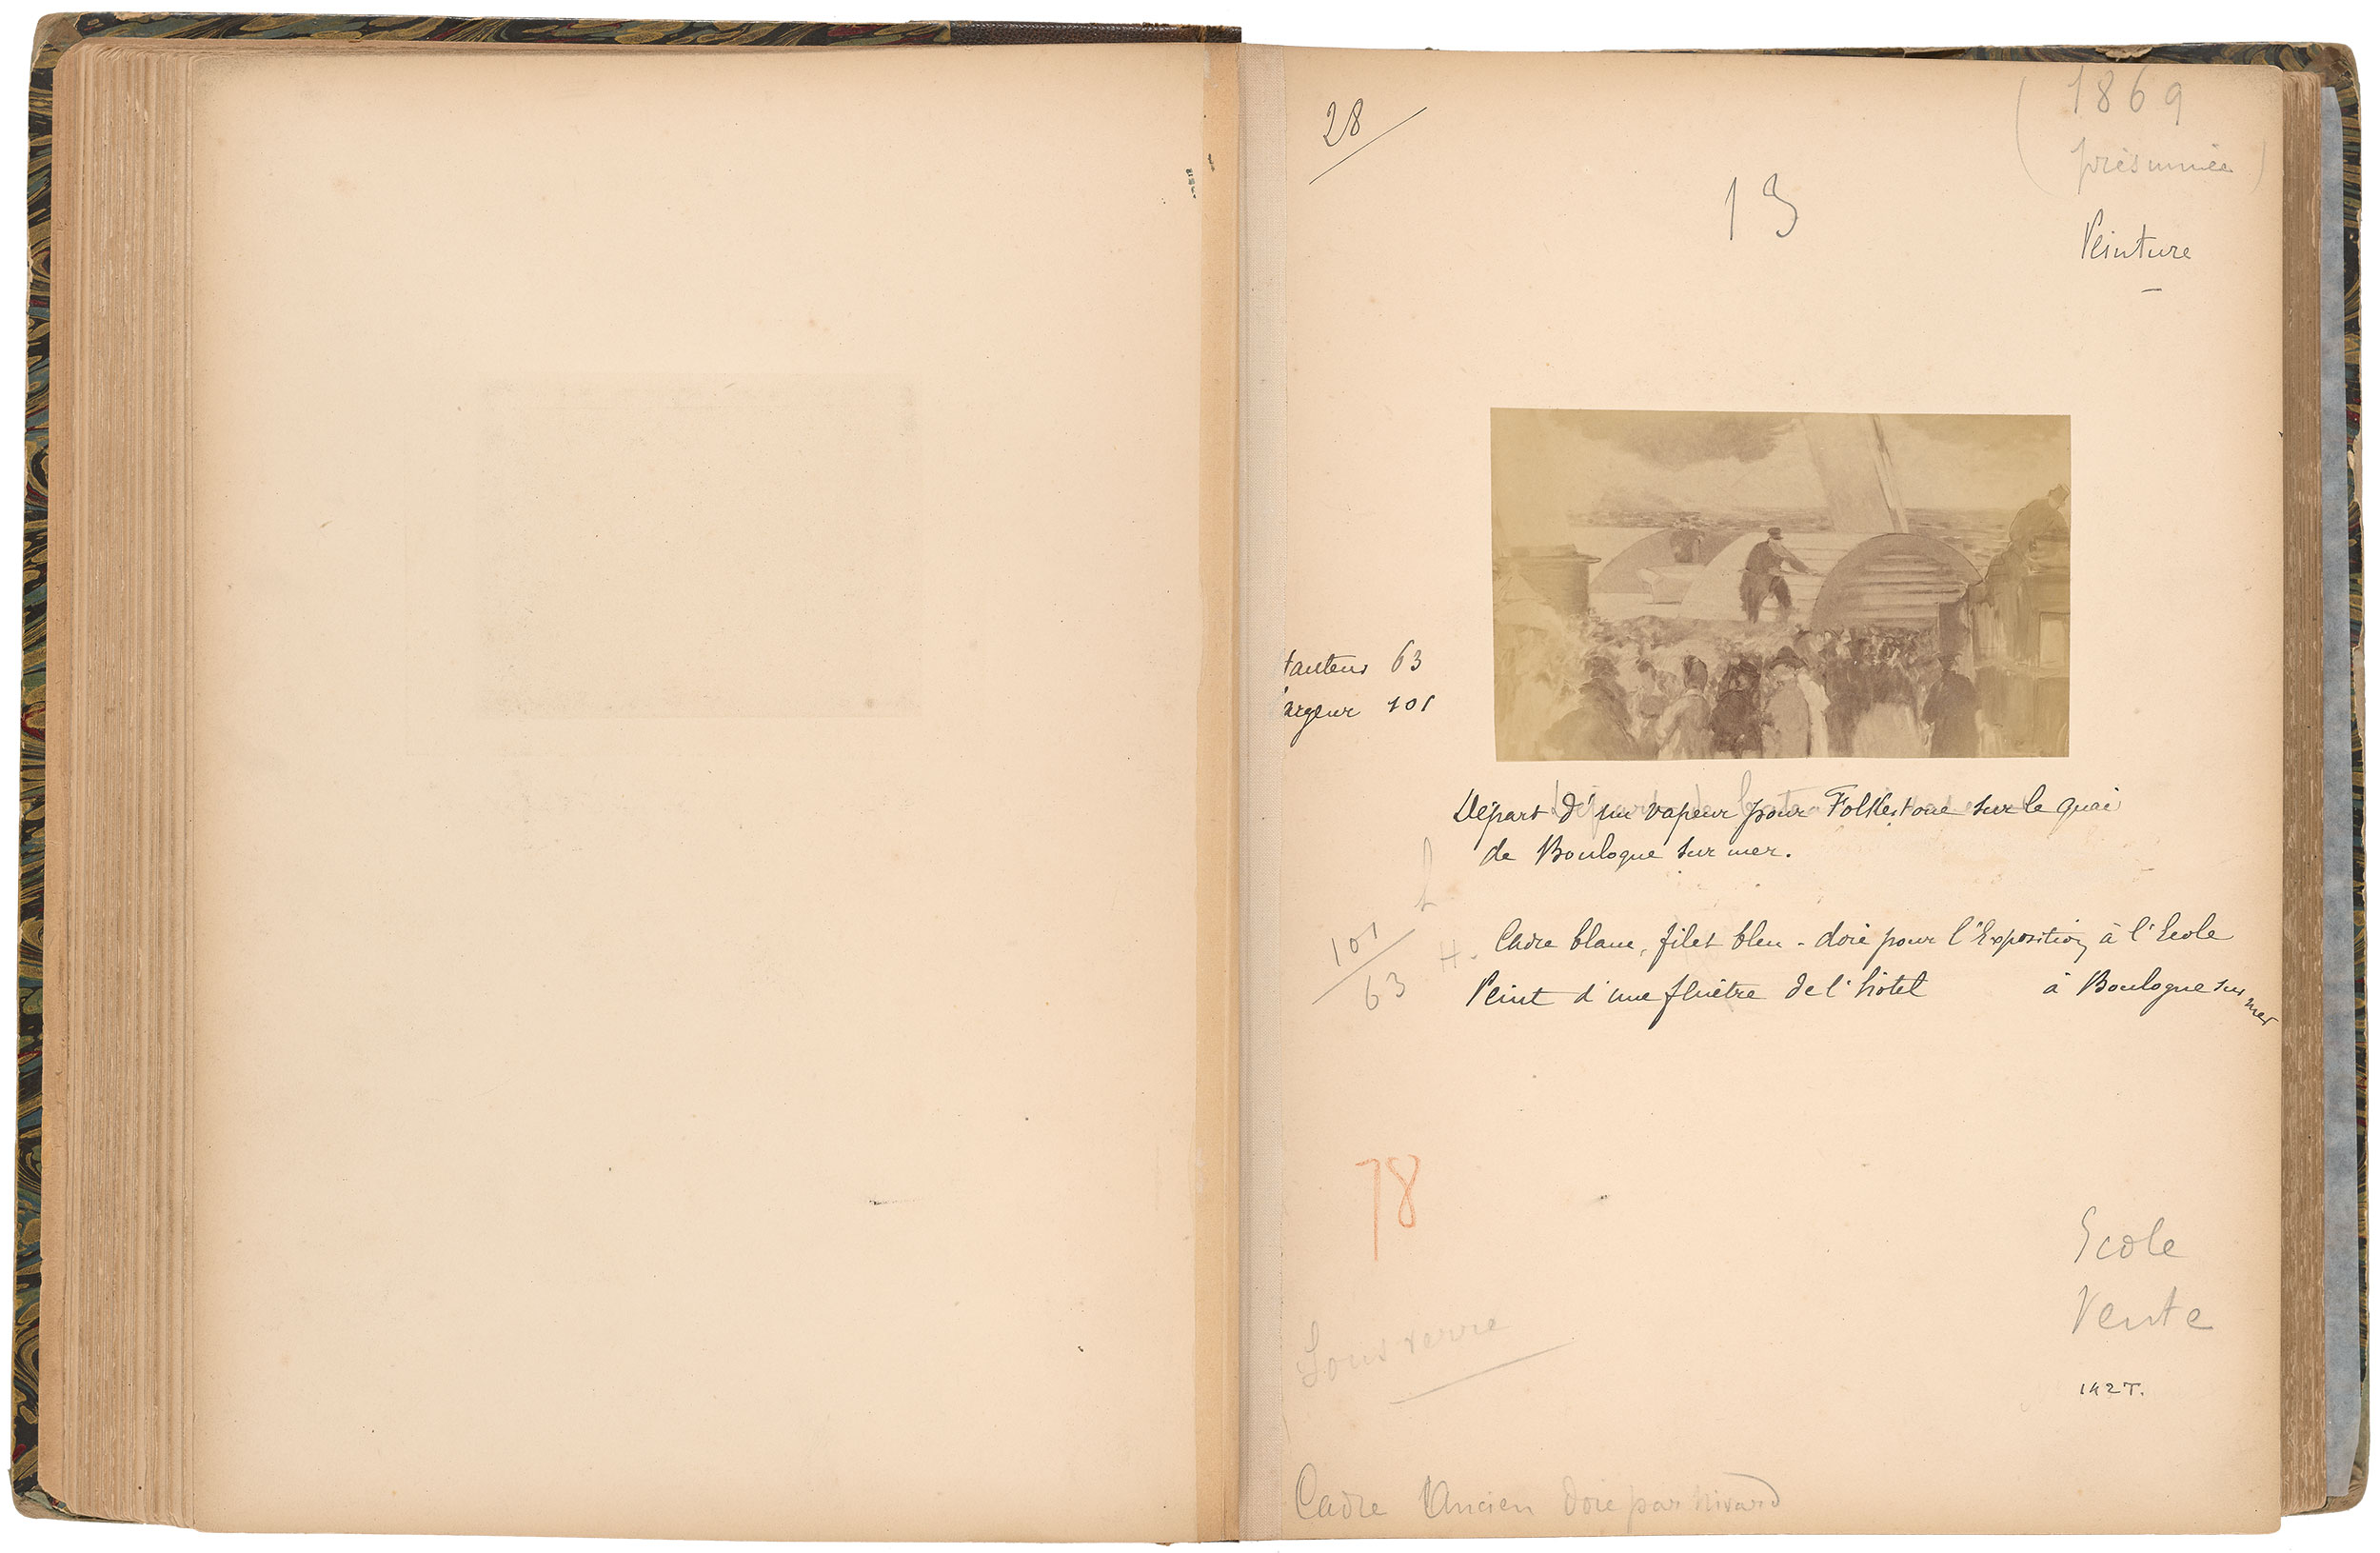 28
(1869
présumée)
13
Peinture
hauteur 63
largeur 101
Départ d'un vapeur pour Folkestone sur le quai
de Boulogne sur mer.
L
101
H.
63
Cadre blanc, filet bleu - doré pour l'Exposition à l'Ecole
Peint d'une fenêtre de l'hôtel à Boulogne sur mer
78
Ecole
Vente
Sous verre
142T.
Cadre Ancien doré par Nivard